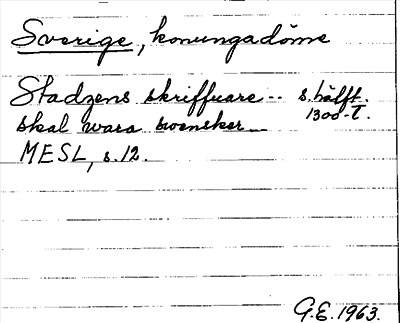 Sverige, konungadöme
Stadzens skriffuare.. s. hälft.
skal wara swensker_ 1300-t.
MESL, s. 12.
G.E. 1963.